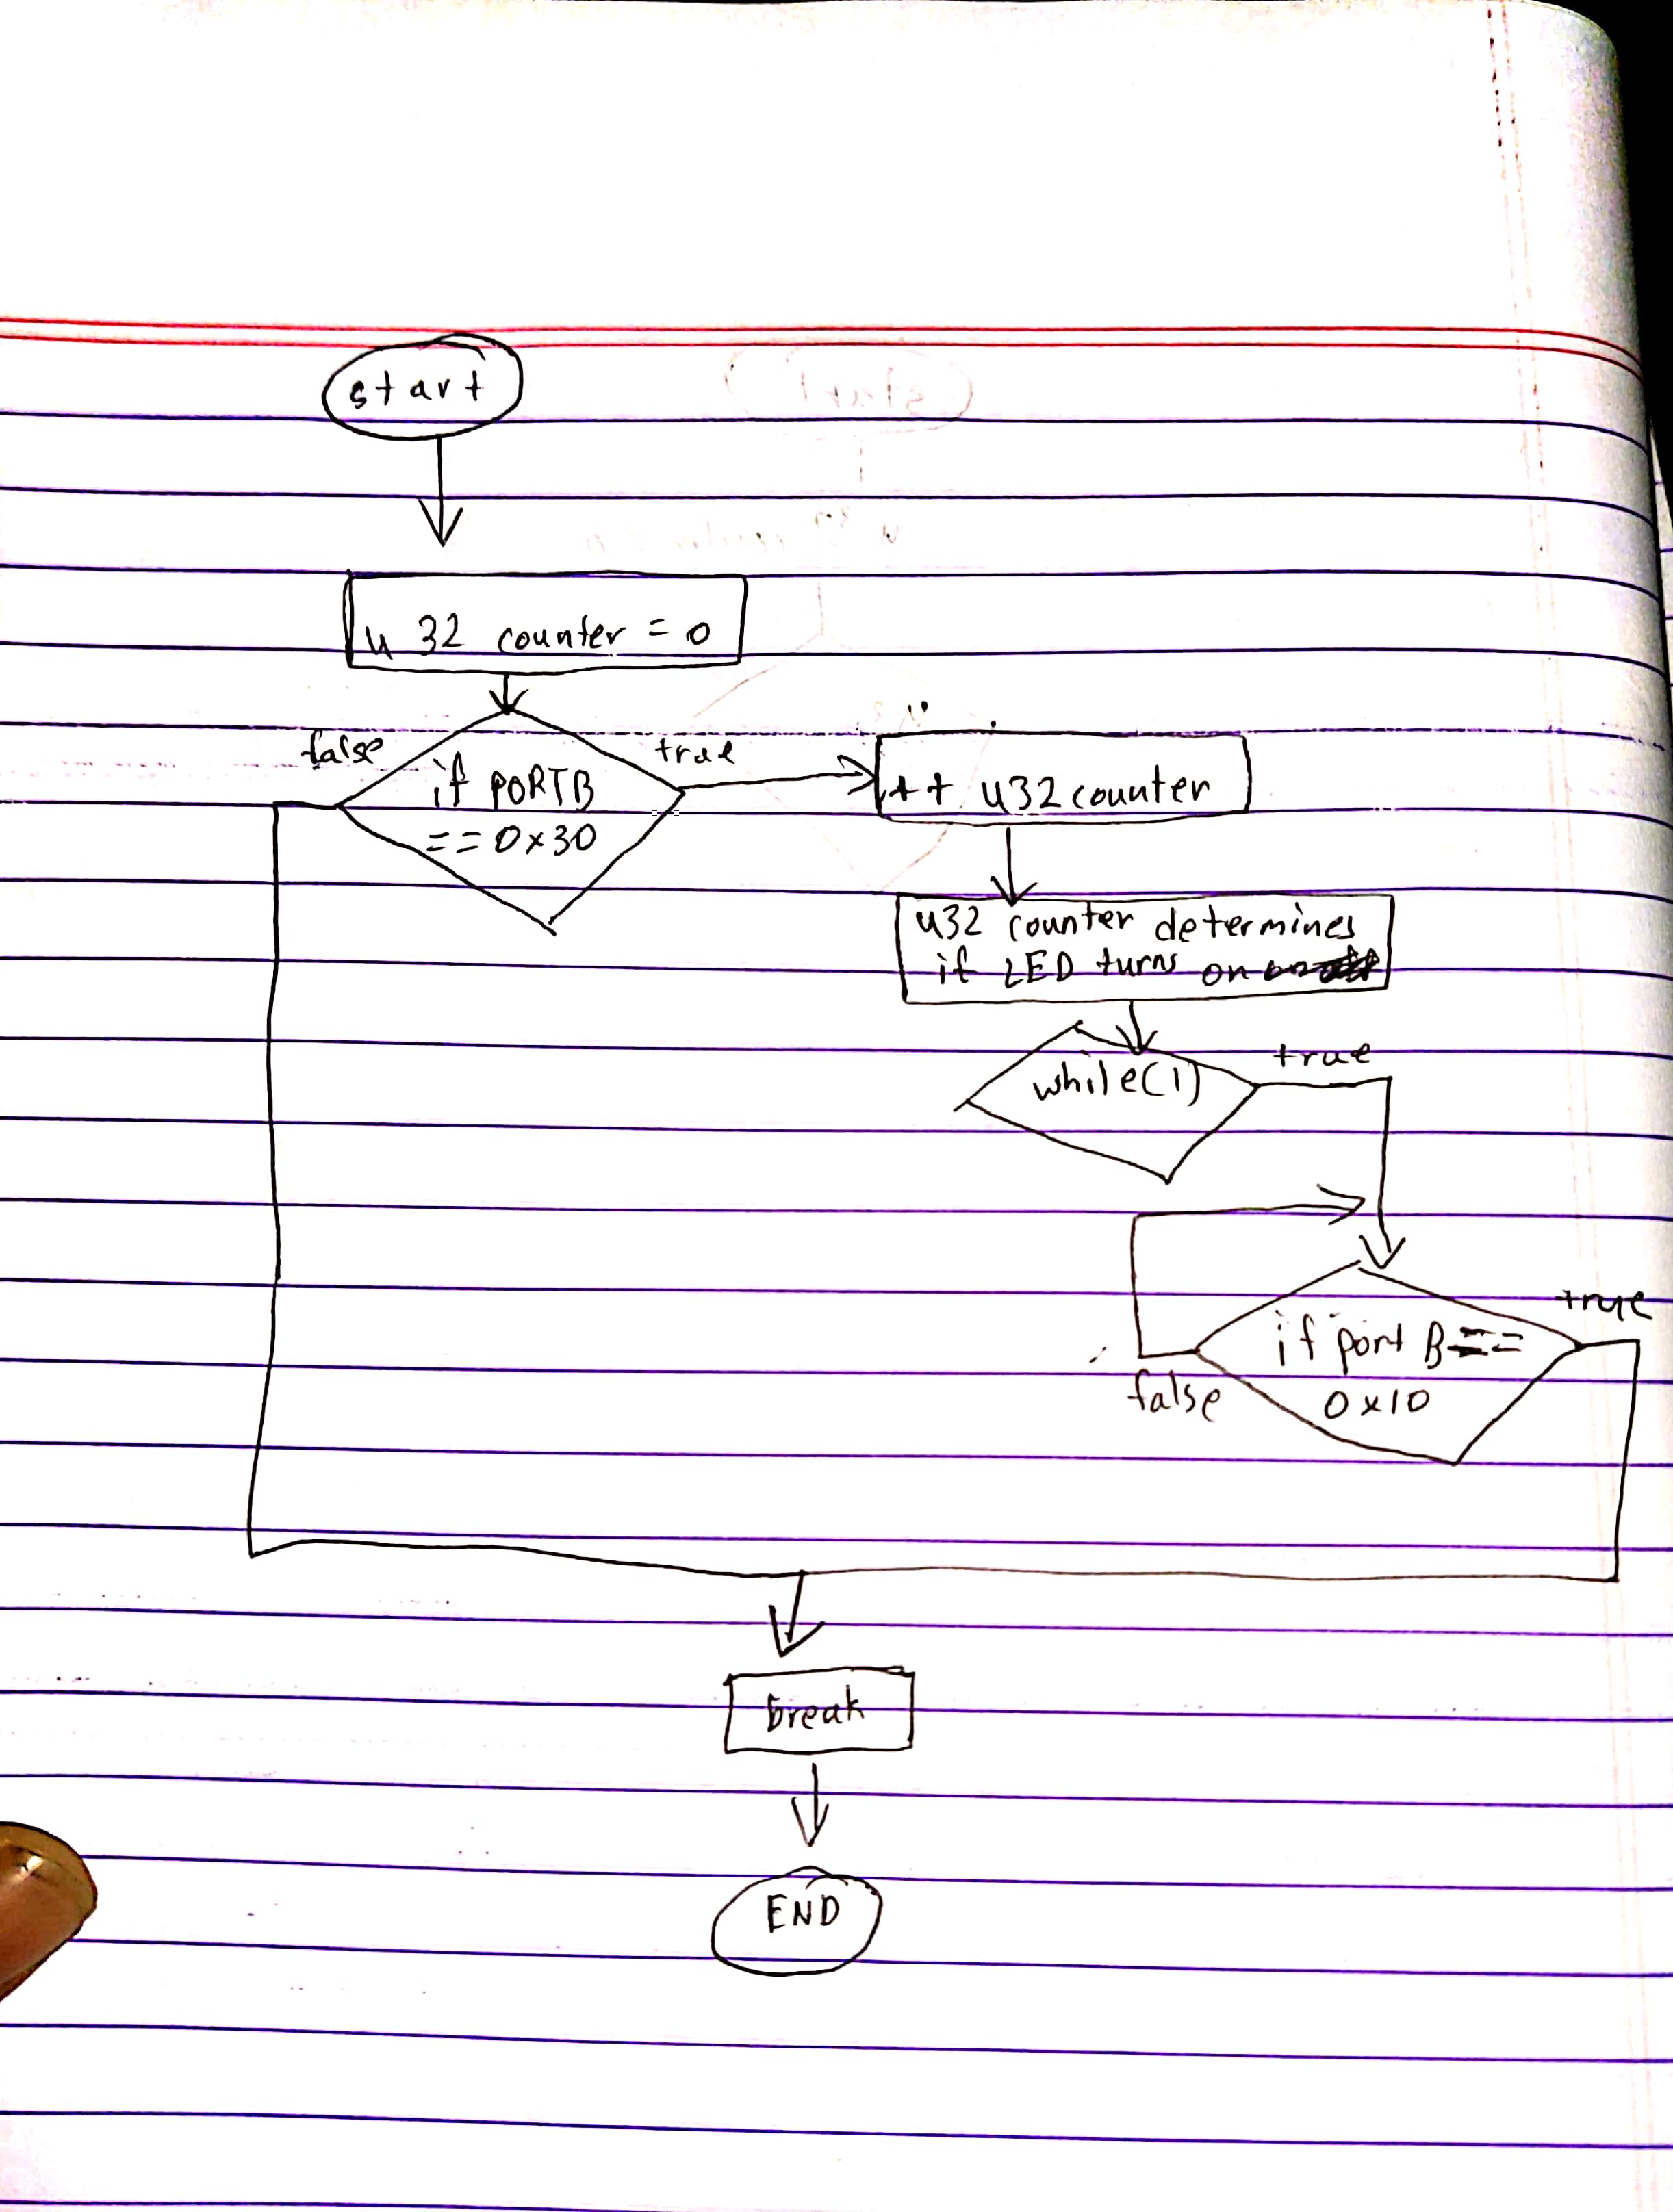 start
u 32 counter = 0
false
true
if PORTB
== 0x30
++ u32 counter
u32 counter determines
if LED turns on
while(1)
true
true
if port B ==
0x10
false
break
END